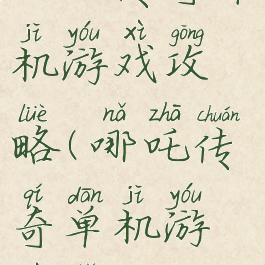 jī yóu xì gōng
机游戏攻
lüè nǎ zhā chuán
略(哪吒传
qí dān jī yóu
奇单机游